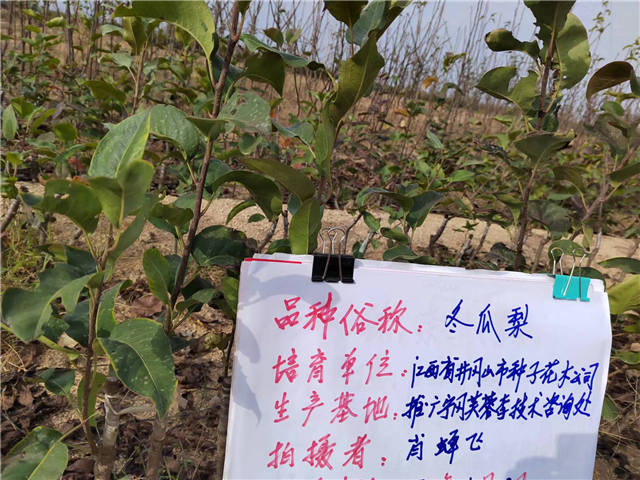 品种俗称：冬瓜梨
培育单位：江西省井冈山市种子花木公司
生产基地：推广宇冈芙蓉李技术咨询处
拍摄者：肖蝉飞